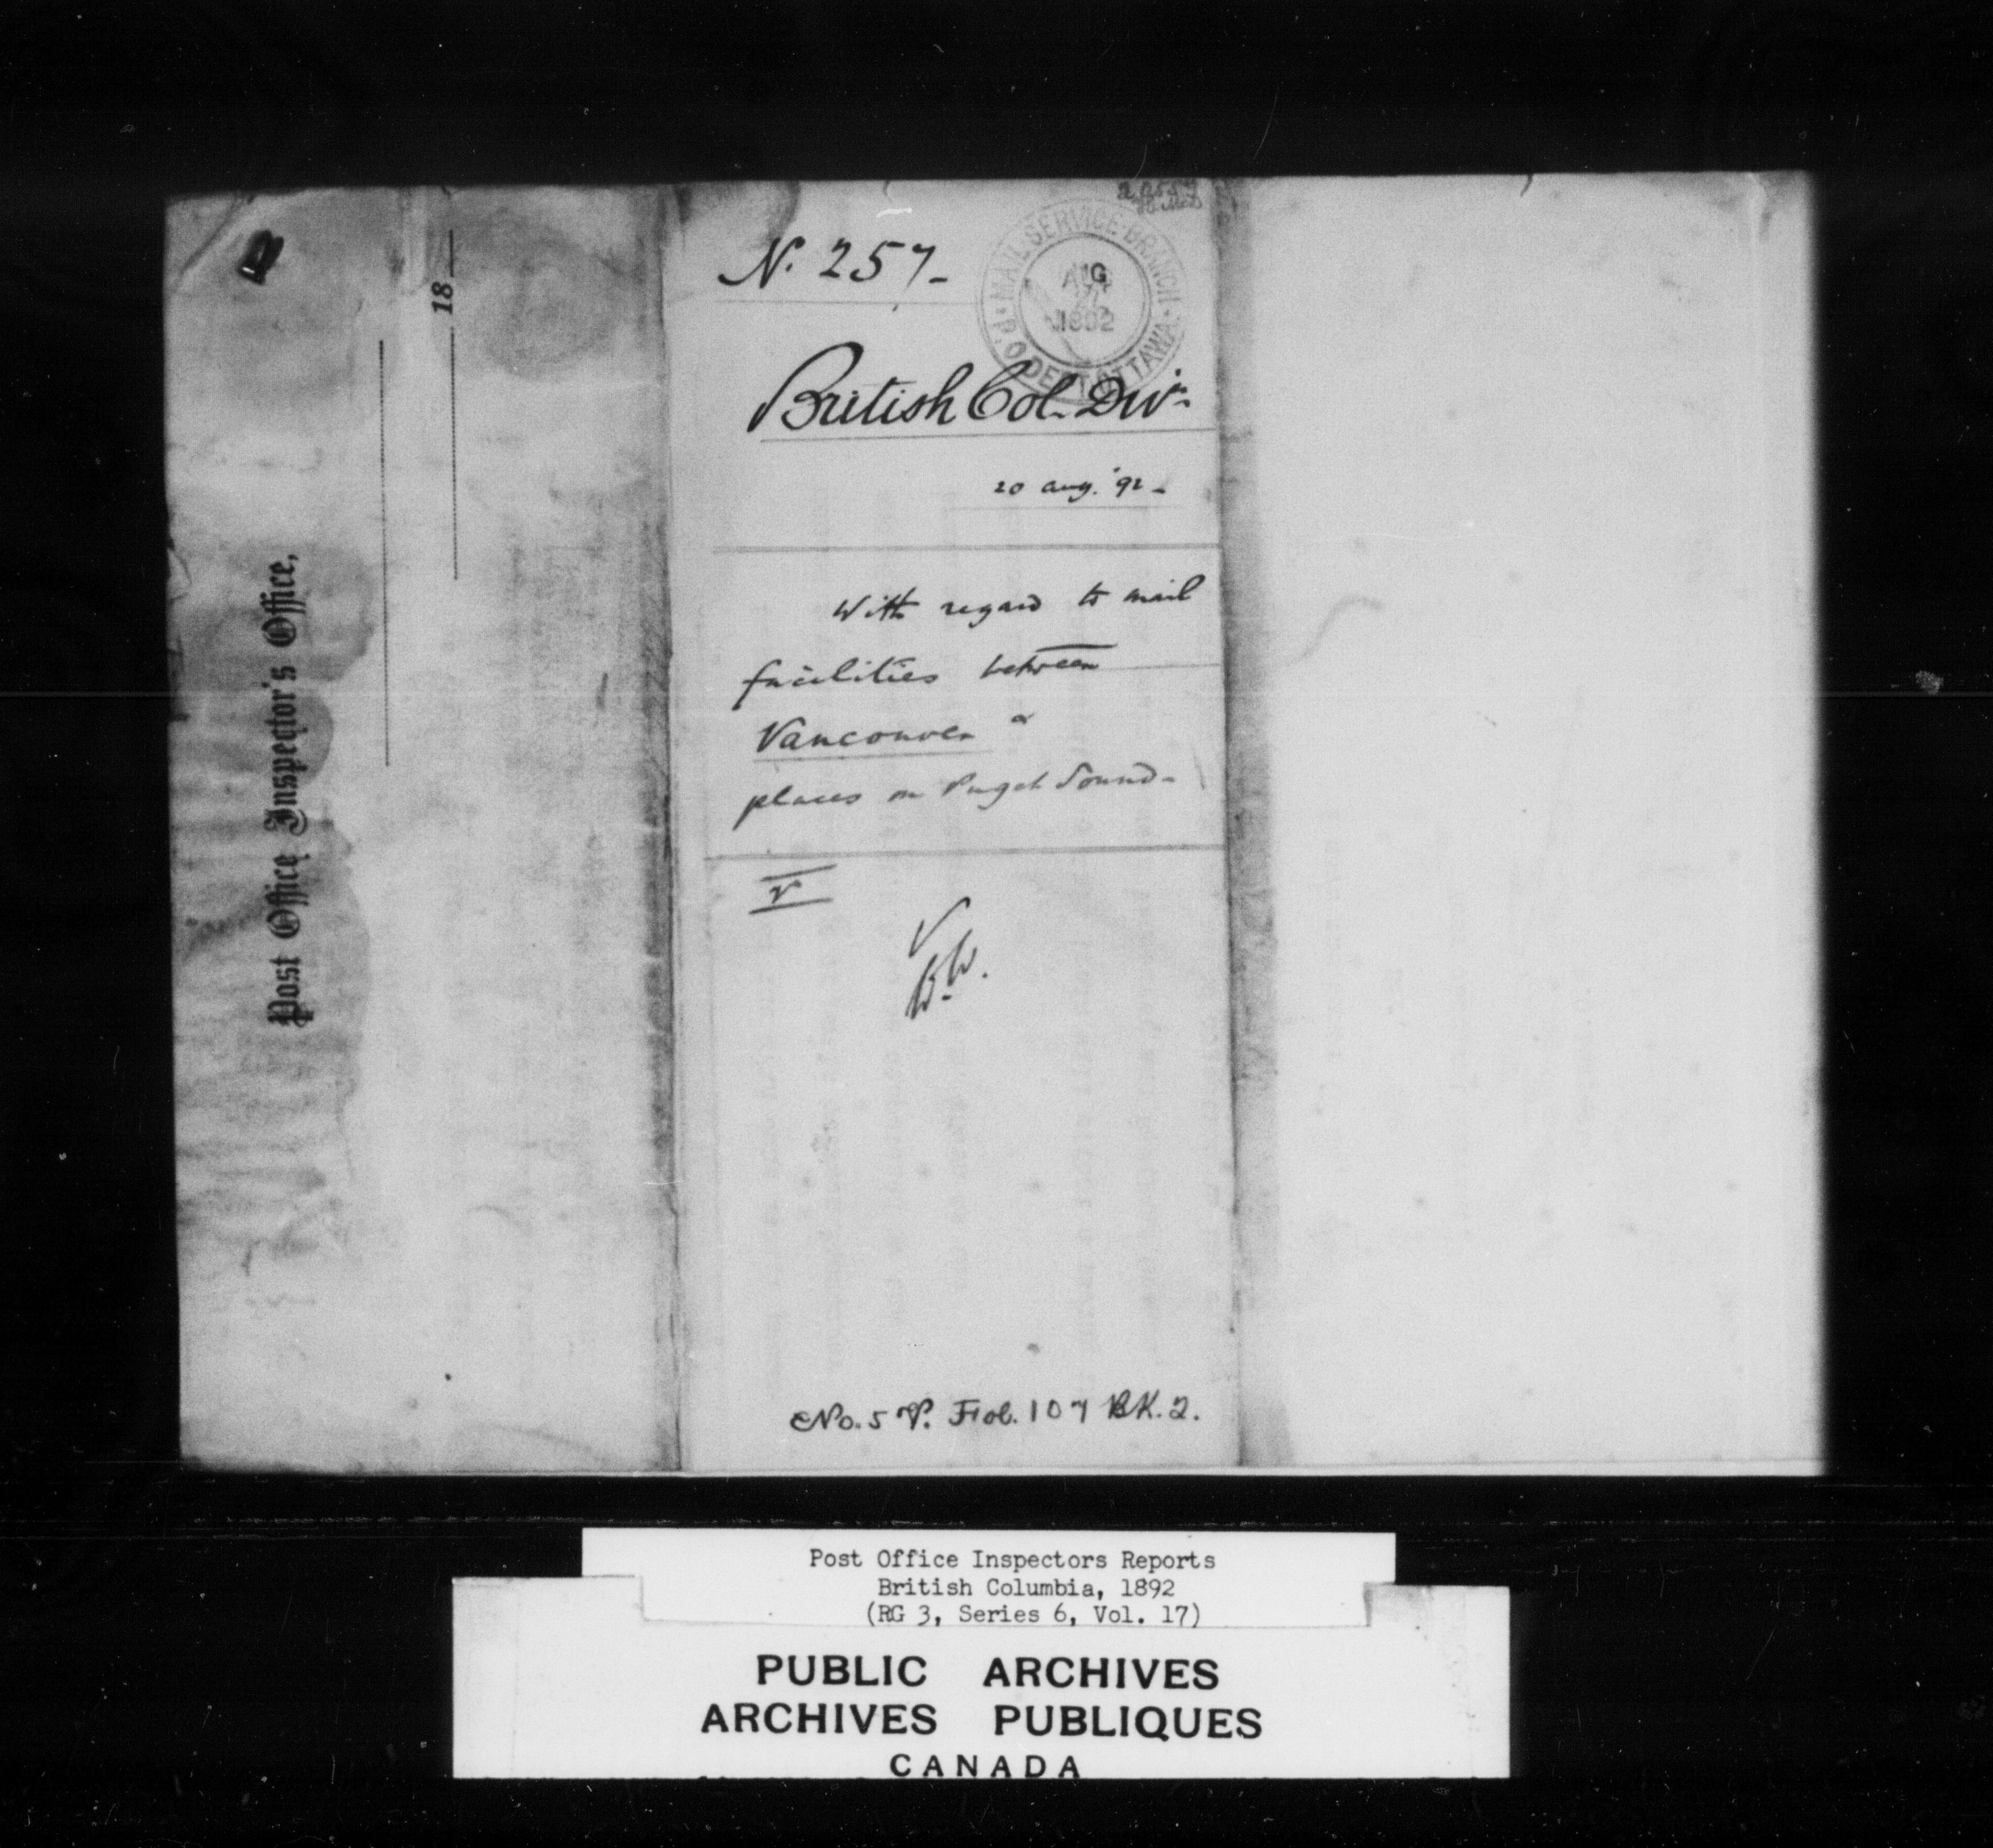 Post Office Inspector's Office,
18
N. 257-
MAIL SERVICE BRANCH
AUG
1892
P.O. DEPT OTTAWA
British Col. Divn.
20 Aug. '92-
With regard to mail
facilities between
Vancouver &
places on Puget Sound-
V
B.C.
No. 5 V. Fol. 107 BK. 2.
Post Office Inspectors Reports
British Columbia, 1892
(RG 3, Series 6, Vol. 17)
PUBLIC ARCHIVES
ARCHIVES PUBLIQUES
CANADA